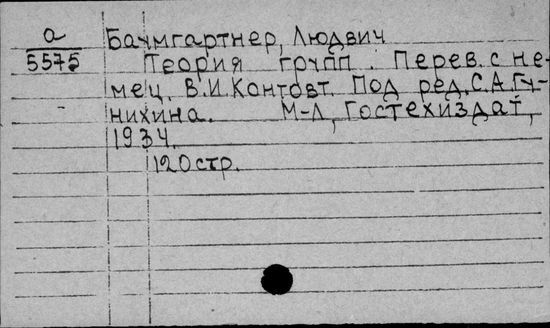 а
5575
Баумгартнер, Людвич
Теория групп. Перев. с не-
мец. В.И. Контовт. Под ред. С.А. Гу-
нихина. М-Л, Гостехиздат,
1934.
120 стр.